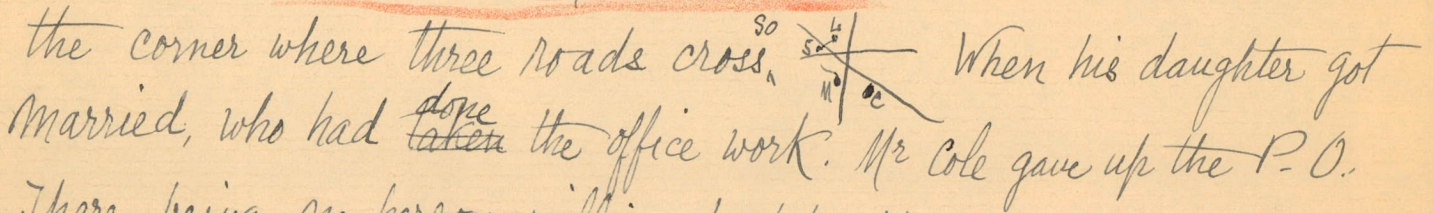 the corner where three roads cross, so When his daughter got
married, who had taken done the office work. Mr Cole gave up the P.O.
There being no person willing